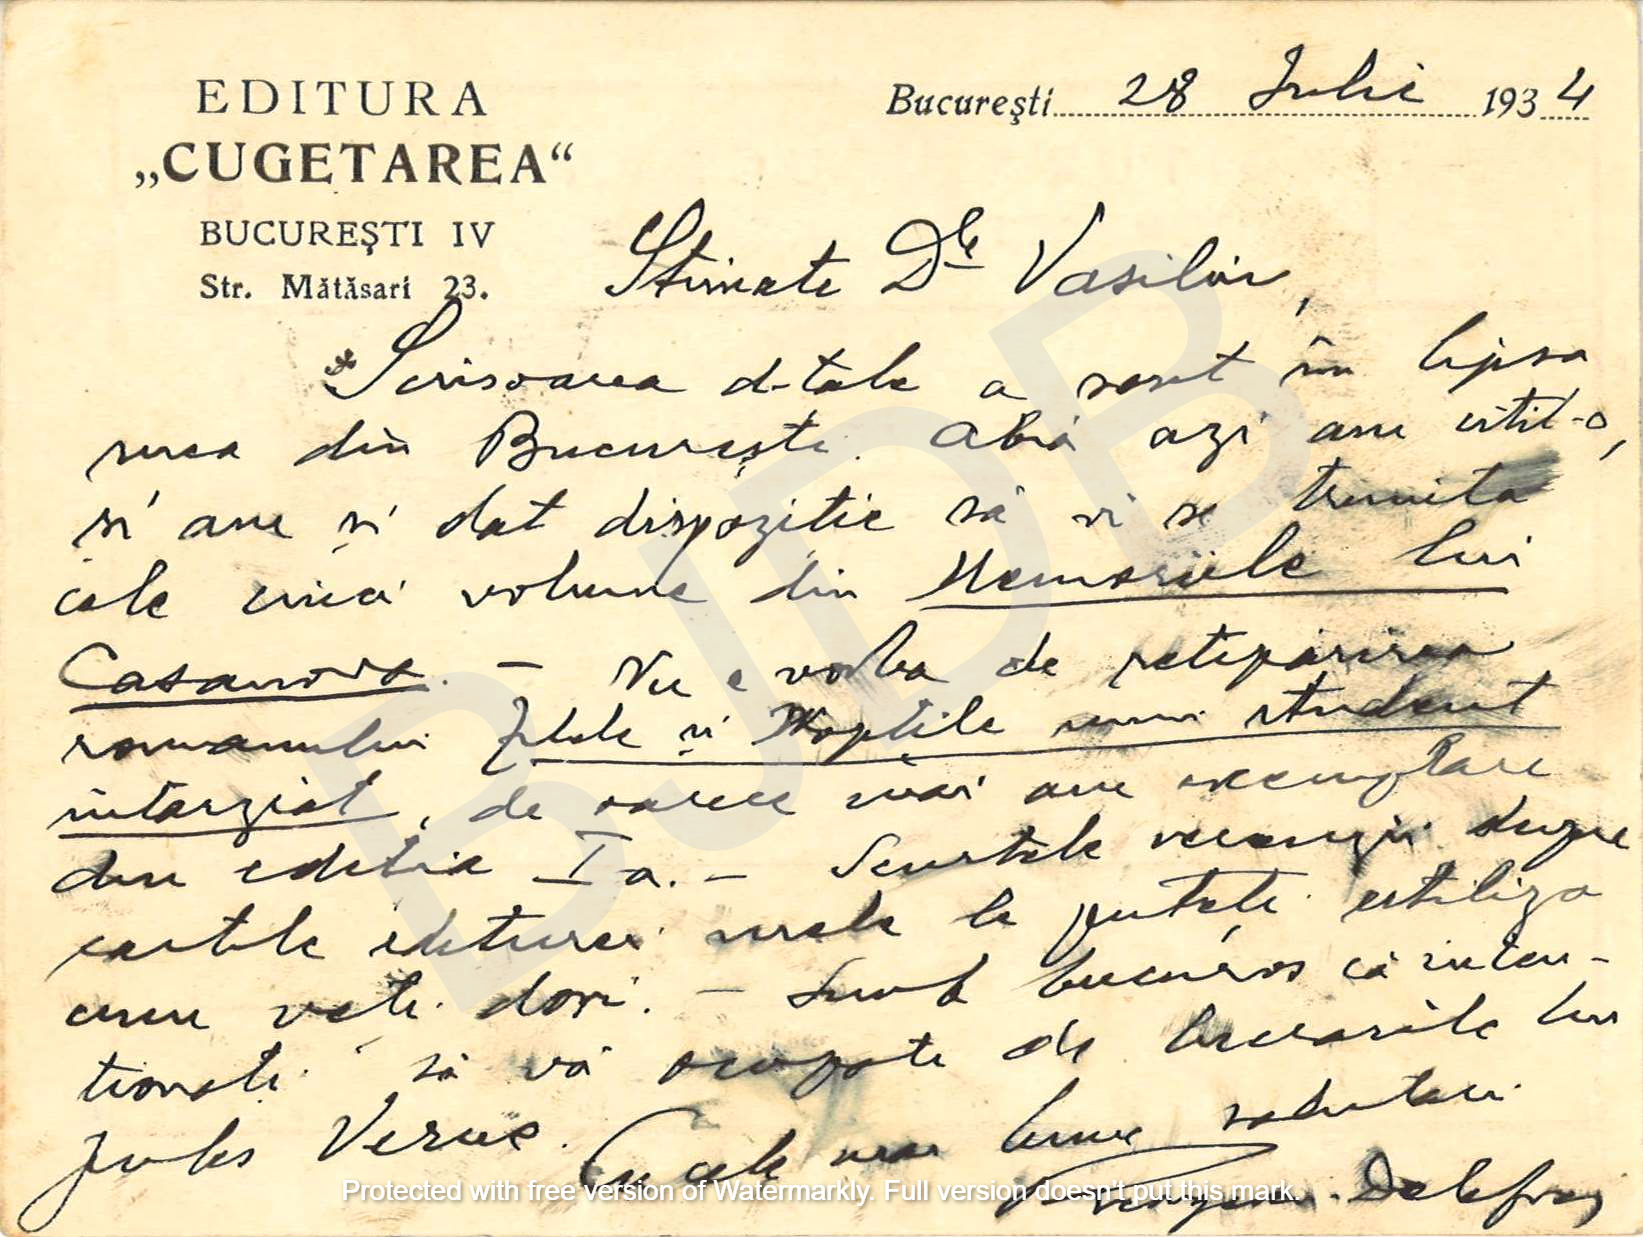 EDITURA
„CUGETAREA“
BUCUREŞTI IV
Str. Mătăsari 23.
Bucureşti 28 Iulie 1934
Stimate Dle Vasiliu,
Scrisoarea d-tale a sosit în lipsa
mea din Bucureşti. Abia azi am citit-o,
si am si dat dispozitie să vi se trimita
cele cinci volume din Memoriile lui
Casanova. - Nu e vorba de retipărirea
romanului Zilele şi Nopţile unui student
intarziat, de oarece mai am exemplare
din editia I a. - Scurtele recenzii despre
cartile editurei mele le puteţi utiliza
cum veti dori. - Sunt bucuros că inten-
tionati să vă ocupati de lucrarile lui
Jules Verne.
Cu cele mai bune salutari
Delafras
BJDB
Protected with free version of Watermarkly. Full version doesn't put this mark.